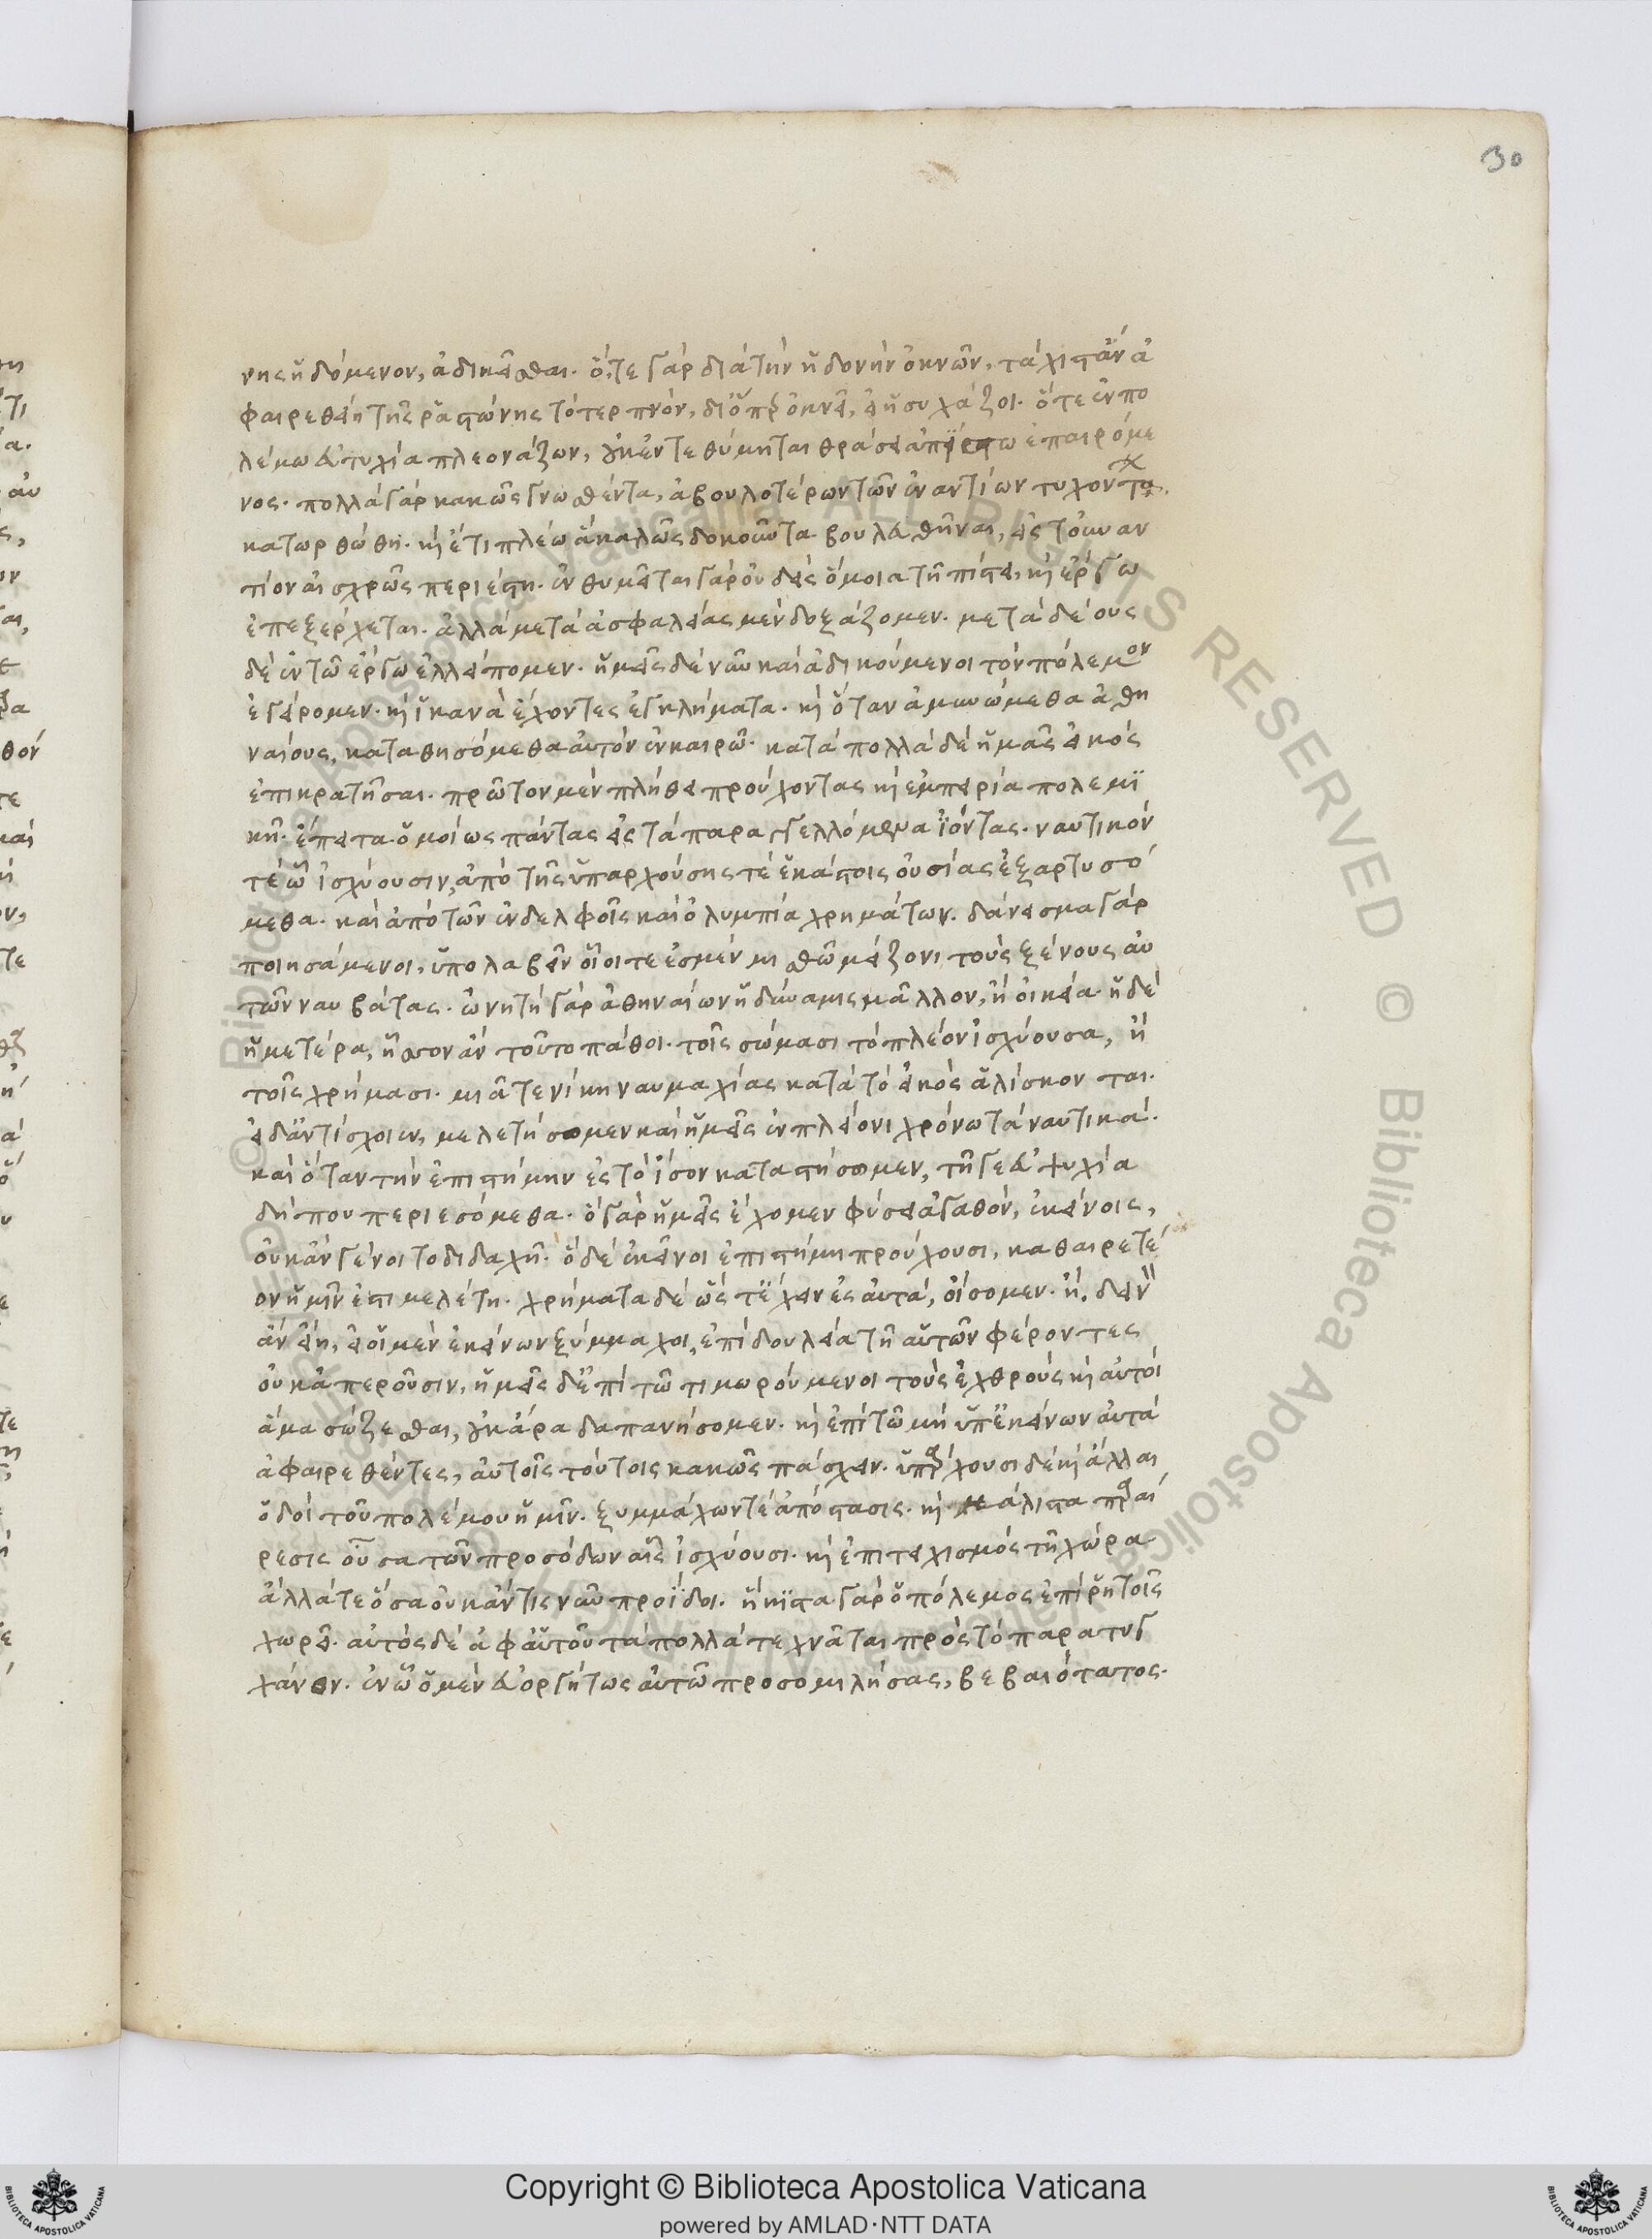 30
νης ἡδόμενον, ἀδικεῖσθαι. ὅ,τε γὰρ διὰ τὴν ἡδονὴν ὀκνῶν, τάχιστ' ἂν ἀ
φαιρεθείη τῆς ῥᾳστώνης τὸ τερπνὸν, δι' ὅπερ ὀκνεῖ, εἰ ἡσυχάζοι. ὅ τε ἐν πο
λέμω εὐτυχία πλεονάζων, οὐκ ἐντεθύμηται θράσει ἀπίστω ἐπαιρόμε
νος. πολλὰ γὰρ κακῶς γνωσθέντα, ἀβουλοτέρων τῶν ἐναντίων τυχόντα
κατωρθώθη. καὶ ἔτι πλέω ἃ καλῶς δοκοῦντα βουλευθῆναι, ἐς τοὐναν
τίον αἰσχρῶς περιέστη. ἐνθυμεῖται γὰρ οὐδεὶς ὅμοια τῆ πίστει, καὶ ἔργω
ἐπεξέρχεται. ἀλλὰ μετὰ ἀσφαλείας μὲν δοξάζομεν. μετὰ δέους
δὲ ἐν τῶ ἔργω ἐλλείπομεν. ἡμεῖς δὲ νῦν καὶ ἀδικούμενοι τὸν πόλεμον
ἐγείρομεν. καὶ ἱκανὰ ἔχοντες ἐγκλήματα. καὶ ὅταν ἀμυνώμεθα ἀθη
ναίους, καταθησόμεθα αὐτὸν ἐν καιρῶ. κατὰ πολλὰ δὲ ἡμᾶς εἰκὸς
ἐπικρατῆσαι. πρῶτον μὲν πλήθει προύχοντας καὶ ἐμπειρία πολεμϊ
κῆ. ἔπειτα ὁμοίως πάντας ἐς τὰ παραγγελλόμενα ἰόντας. ναυτικόν
τε ὧ ἰσχύουσιν, ἀπὸ τῆς ὑπαρχούσης τὲ ἑκάστοις οὐσίας ἐξαρτυσό
μεθα. καὶ ἀπὸ τῶν ἐν δελφοῖς καὶ ὀλυμπία χρημάτων. δάνεισμα γὰρ
ποιησάμενοι, ὑπολαβεῖν οἷοι τε ἐσμὲν μισθῶ μείζονι τοὺς ξένους αὐ
τῶν ναυβάτας. ὠνητὴ γὰρ ἀθηναίων ἡ δύναμις μᾶλλον, ἢ οἰκεία. ἡ δὲ
ἡμετέρα, ἧσσον ἂν τοῦτο πάθοι. τοῖς σώμασι τὸ πλέον ἰσχύουσα, ἢ
τοῖς χρήμασι. μιᾶ τε νίκη ναυμαχίας κατὰ τὸ εἰκὸς ἁλίσκονται.
εἰ δ' ἀντίσχοιεν, μελετήσομεν καὶ ἡμεῖς ἐν πλείονι χρόνω τὰ ναυτικά.
καὶ ὅταν τὴν ἐπιστήμην ἐς τὸ ἴσον καταστήσωμεν, τῆ γε εὐψυχία
δήπου περιεσόμεθα. ὃ γὰρ ἡμεῖς ἔχομεν φύσει ἀγαθὸν, ἐκείνοις,
οὐκ ἂν γένοιτο διδαχῆ. ὃ δὲ ἐκεῖνοι ἐπιστήμη προύχουσι, καθαιρετέ
ον ἡμῖν ἐστι μελέτη. χρήματα δὲ ὥστε ἔχειν ἐς αὐτὰ, οἴσομεν. ἢ δεινὸν
ἂν εἴη, εἰ οἱ μὲν ἐκείνων ξύμμαχοι, ἐπὶ δουλεία τῆ αὑτῶν φέροντες
οὐκ ἀπεροῦσιν, ἡμεῖς δ' ἐπὶ τῶ τιμωρούμενοι τοὺς ἐχθροὺς καὶ αὐτοὶ
ἅμα σώζεσθαι, οὐκ ἄρα δαπανήσομεν. καὶ ἐπὶ τῶ μὴ ὑπ' ἐκείνων αὐτὰ
ἀφαιρεθέντες, αὐτοῖς τούτοις κακῶς πάσχειν. ὑπάρχουσι δὲ καὶ ἄλλαι
ὁδοὶ τοῦ πολέμου ἡμῖν. ξυμμάχων τὲ ἀπόστασις. καὶ μάλιστα παραί
ρεσις οὖσα τῶν προσόδων αἷς ἰσχύουσι. καὶ ἐπιτειχισμὸς τῆ χώρα
ἄλλά τε ὅσα οὐκ ἄν τις νῦν προΐδοι. ἥκιστα γὰρ ὁ πόλεμος ἐπὶ ῥητοῖς
χωρεῖ. αὐτὸς δὲ ἀφ' αὑτοῦ τὰ πολλὰ τεχνᾶται πρὸς τὸ παρατυγ
χάνον. ἐν ὧ ὁ μὲν εὐοργήτως αὐτῶ προσομιλήσας, βεβαιότατος.
Copyright © Biblioteca Apostolica Vaticana
powered by AMLAD·NTT DATA